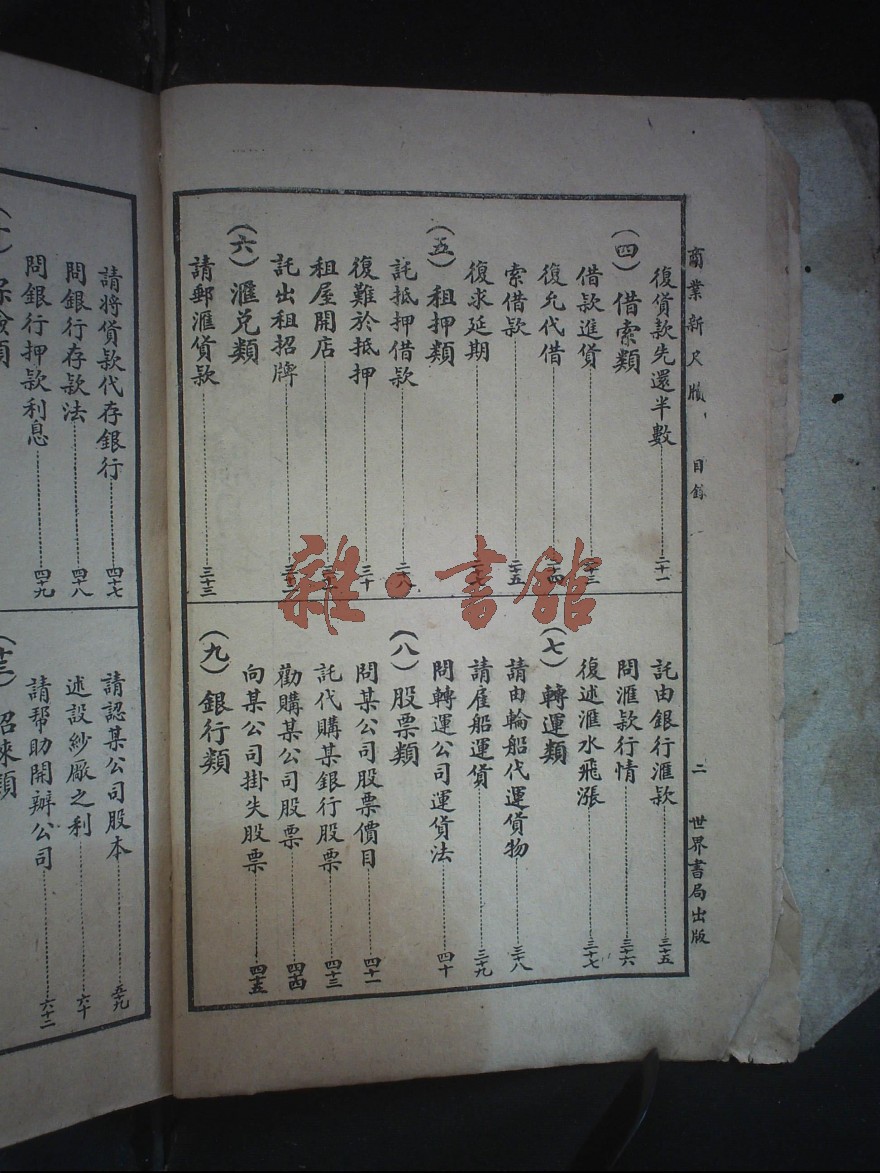 商業新尺牘 目錄 二 世界書局出版
復貨款先還半數 二十一
（四）借索類
借款進貨
復允代借
索借款 二十五
復求延期 二十七
（五）租押類
託抵押借款 二十八
復難於抵押 三十
租屋開店
託出租招牌
（六）滙兌類
請郵滙貨款 三十三
託由銀行滙款 三十五
問滙款行情 三十六
復述滙水飛漲 三十七
（七）轉運類
請由輪船代運貨物 三十八
請雇船運貨 三十九
問轉運公司運貨法 四十
（八）股票類
問某公司股票價目 四十一
託代購某銀行股票 四十三
勸購某公司股票 四十四
向某公司掛失股票 四十五
（九）銀行類
請將貨款代存銀行 四十七
問銀行存款法 四十八
問銀行押款利息 四十九
請認某公司股本 五十九
述設紗廠之利 六十
請帮助開辦公司 六十二
雜·書館